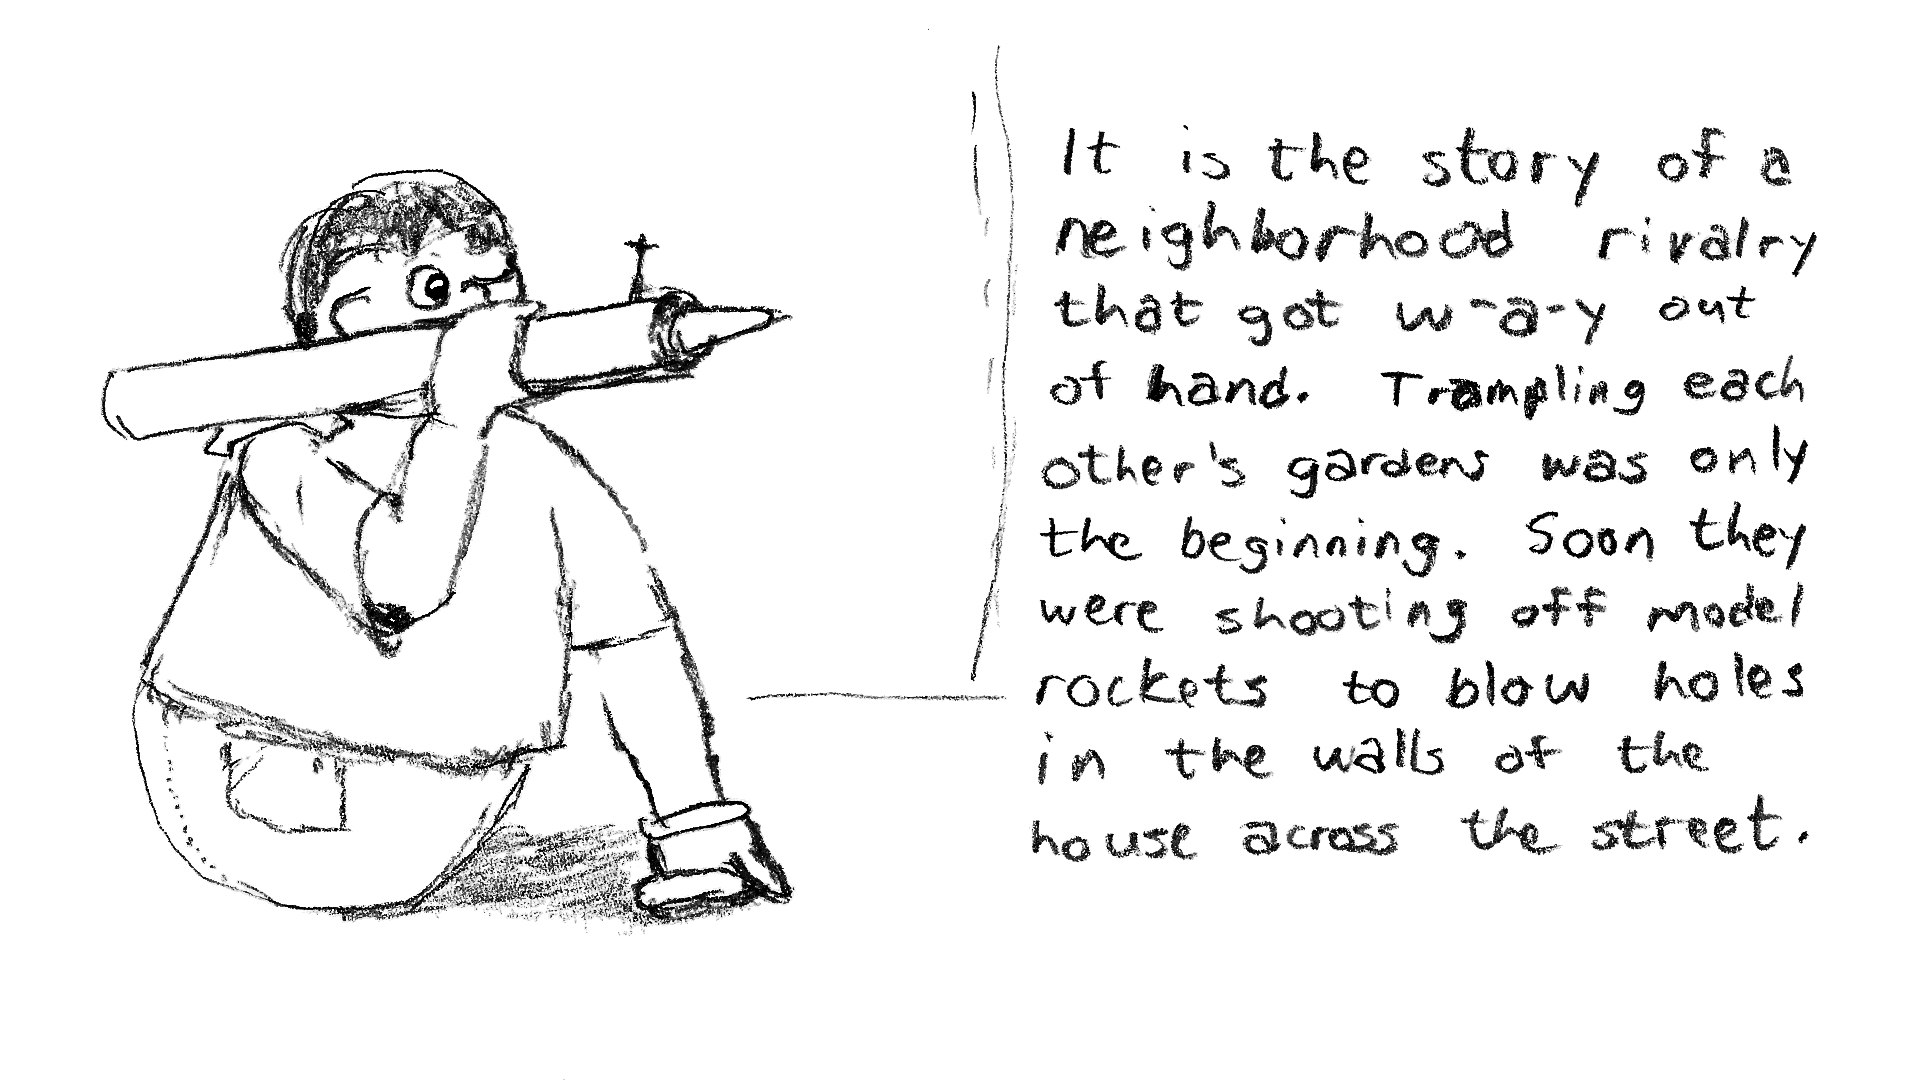 It is the story of a
neighborhood rivalry
that got w-a-y out
of hand. Trampling each
other's gardens was only
the beginning. Soon they
were shooting off model
rockets to blow holes
in the walls of the
house across the street.